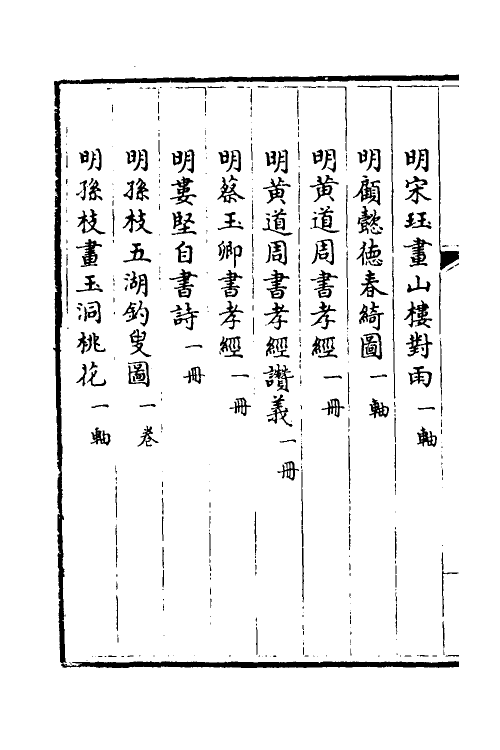 明宋珏畫山樓對雨一軸
明顧懿德春綺圖一軸
明黄道周書孝經一冊
明黄道周書孝經讚義一冊
明蔡玉卿書孝經一冊
明婁堅自書詩一冊
明孫枝五湖釣叟圖一卷
明孫枝畫玉洞桃花一軸